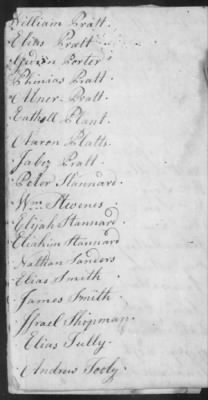 William Pratt.
Elias Pratt.
Gideon Porter
Phinias Pratt.
Abner Pratt.
Cathell Plant.
Aaron Platts
Jabez Pratt.
Peter Stannard.
Wm Stevens.
Elijah Stannard
Eliakim Stannard
Nathan Sanders
Elias Smith.
James Smith.
Israel Shipman.
Elias Tully.
Andrew Tooly.